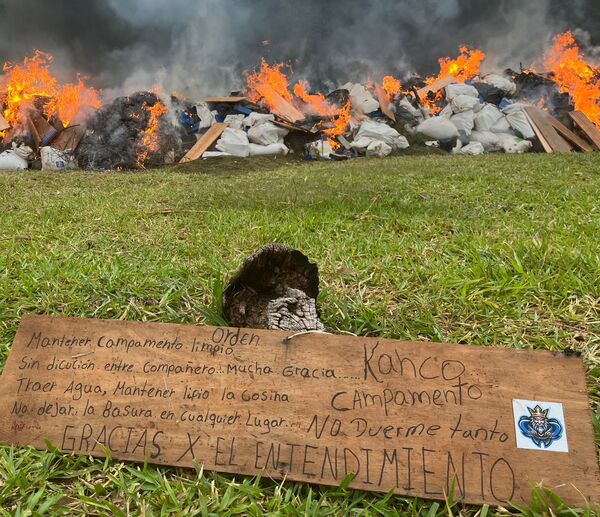 Orden
Mantener campamento limpio
Sin dicución entre Compañero.. Mucha Gracia....
Traer Agua, Mantener lipio la Cosina
No. dejar. la Basura en cualquier Lugar...
Kanco
Campamento
No Duerme tanto
GRACIAS X EL ENTENDIMIENTO